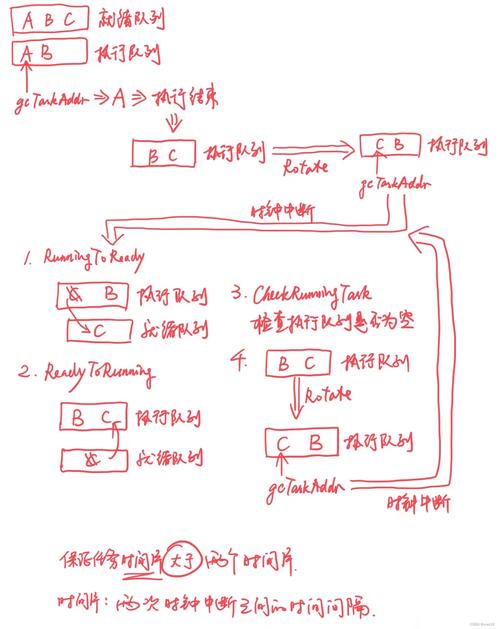 A B C 就绪队列
A B 执行队列
gcTaskAddr ⇒ A ⇒ 执行结束
B C 执行队列
Rotate
C B 执行队列
gcTaskAddr
时钟中断
1. RunningToReady
C B 执行队列
C 就绪队列
2. ReadyToRunning
B C 执行队列
C 就绪队列
3. CheckRunningTask
检查执行队列是否为空
4. B C 执行队列
Rotate
C B 执行队列
gcTaskAddr
时钟中断
保证任务时间片大于两个时间片.
时间片：两次时钟中断之间的时间间隔.